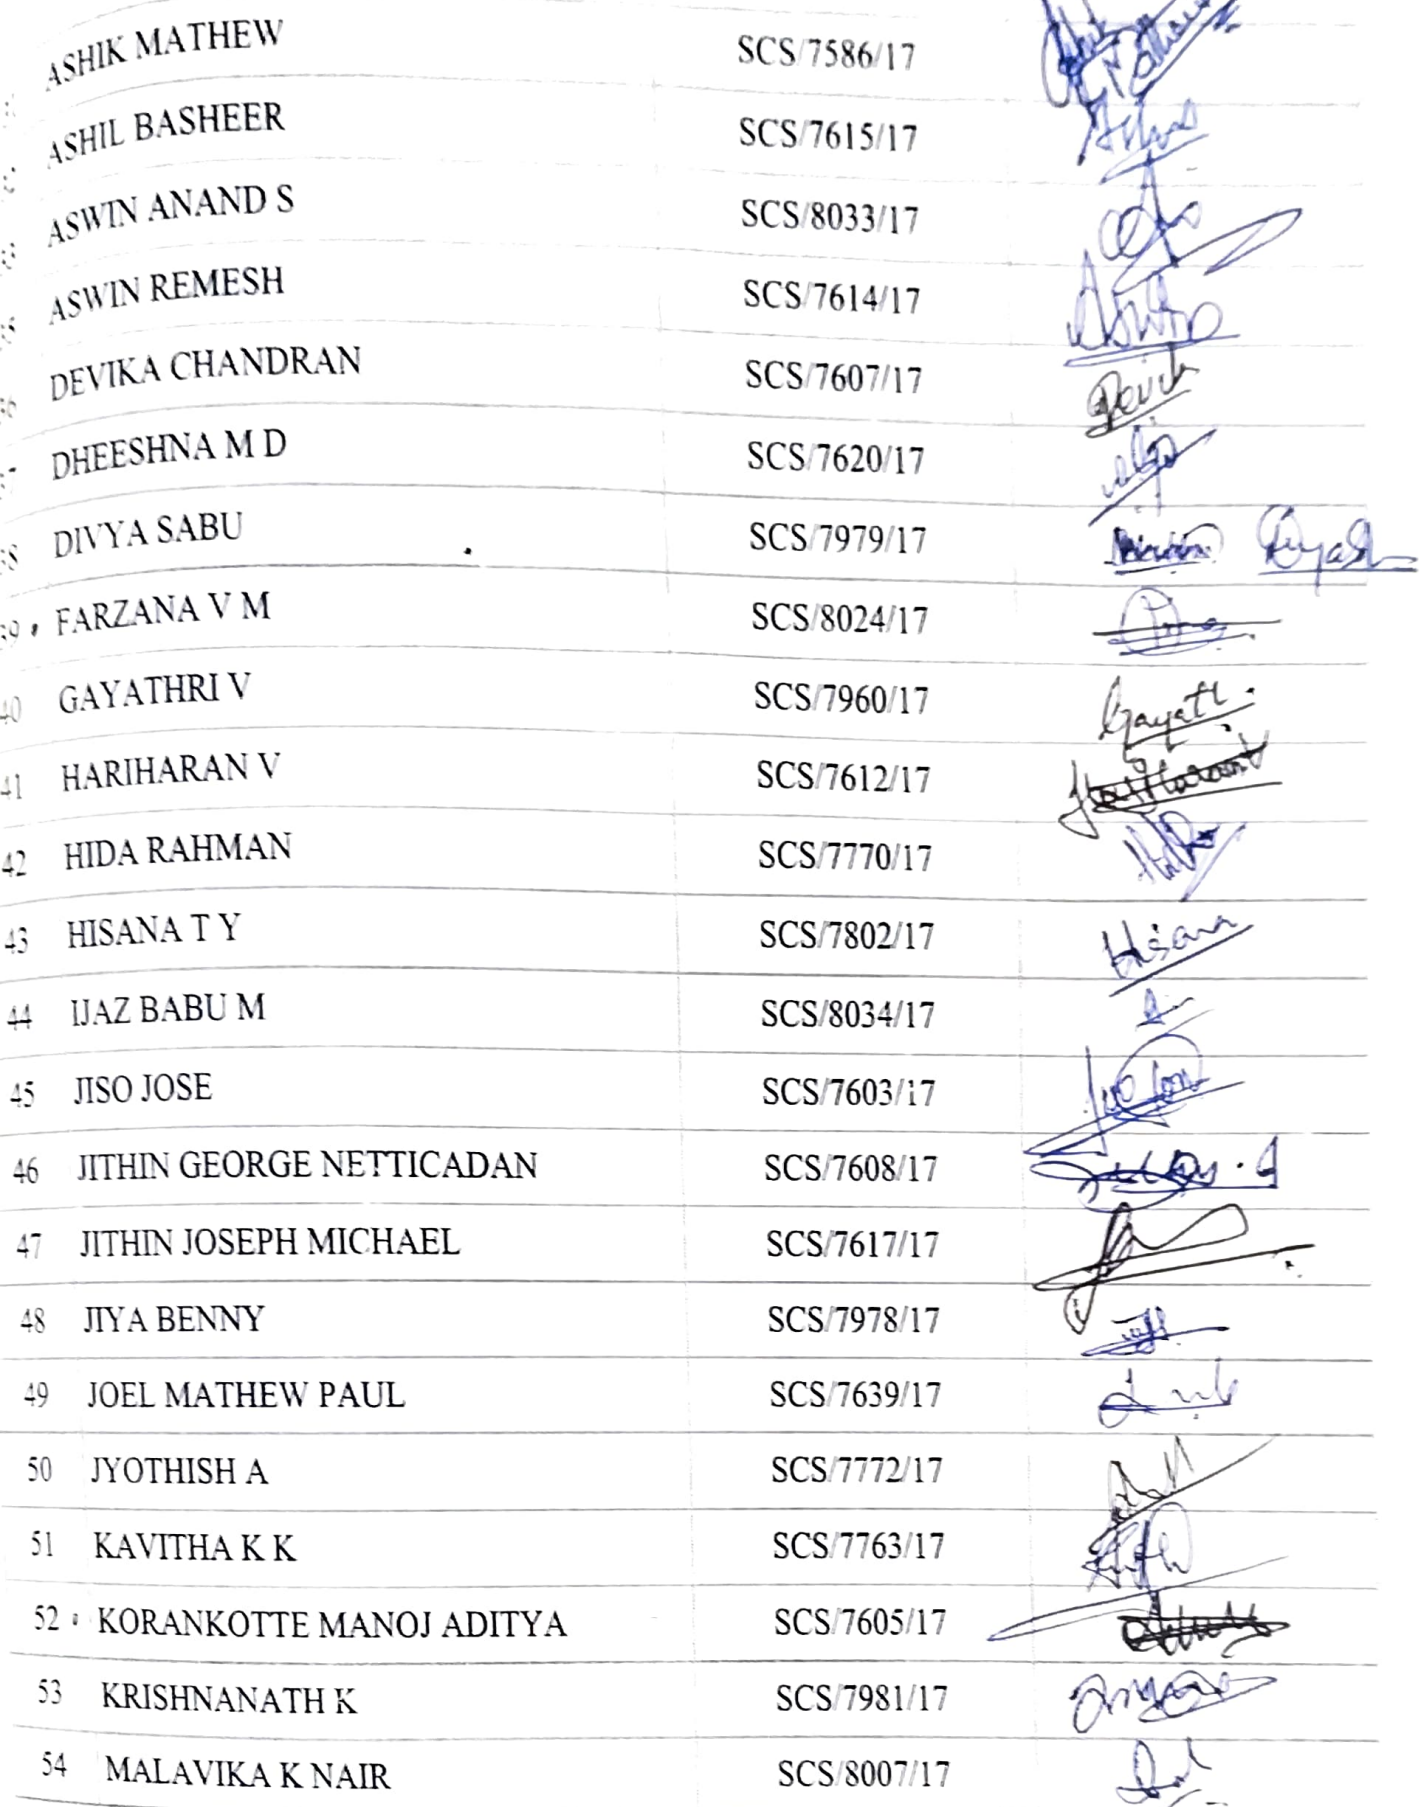 ASHIK MATHEW SCS/7586/17
ASHIL BASHEER SCS/7615/17
ASWIN ANAND S SCS/8033/17
ASWIN REMESH SCS/7614/17
36 DEVIKA CHANDRAN SCS/7607/17 Devik
37 DHEESHNA M D SCS/7620/17
38 DIVYA SABU SCS/7979/17
39 FARZANA V M SCS/8024/17
40 GAYATHRI V SCS/7960/17
41 HARIHARAN V SCS/7612/17 Hariharan V
42 HIDA RAHMAN SCS/7770/17
43 HISANA T Y SCS/7802/17 Hisana
44 IJAZ BABU M SCS/8034/17
45 JISO JOSE SCS/7603/17
46 JITHIN GEORGE NETTICADAN SCS/7608/17
47 JITHIN JOSEPH MICHAEL SCS/7617/17
48 JIYA BENNY SCS/7978/17
49 JOEL MATHEW PAUL SCS/7639/17
50 JYOTHISH A SCS/7772/17
51 KAVITHA K K SCS/7763/17
52 KORANKOTTE MANOJ ADITYA SCS/7605/17
53 KRISHNANATH K SCS/7981/17
54 MALAVIKA K NAIR SCS/8007/17